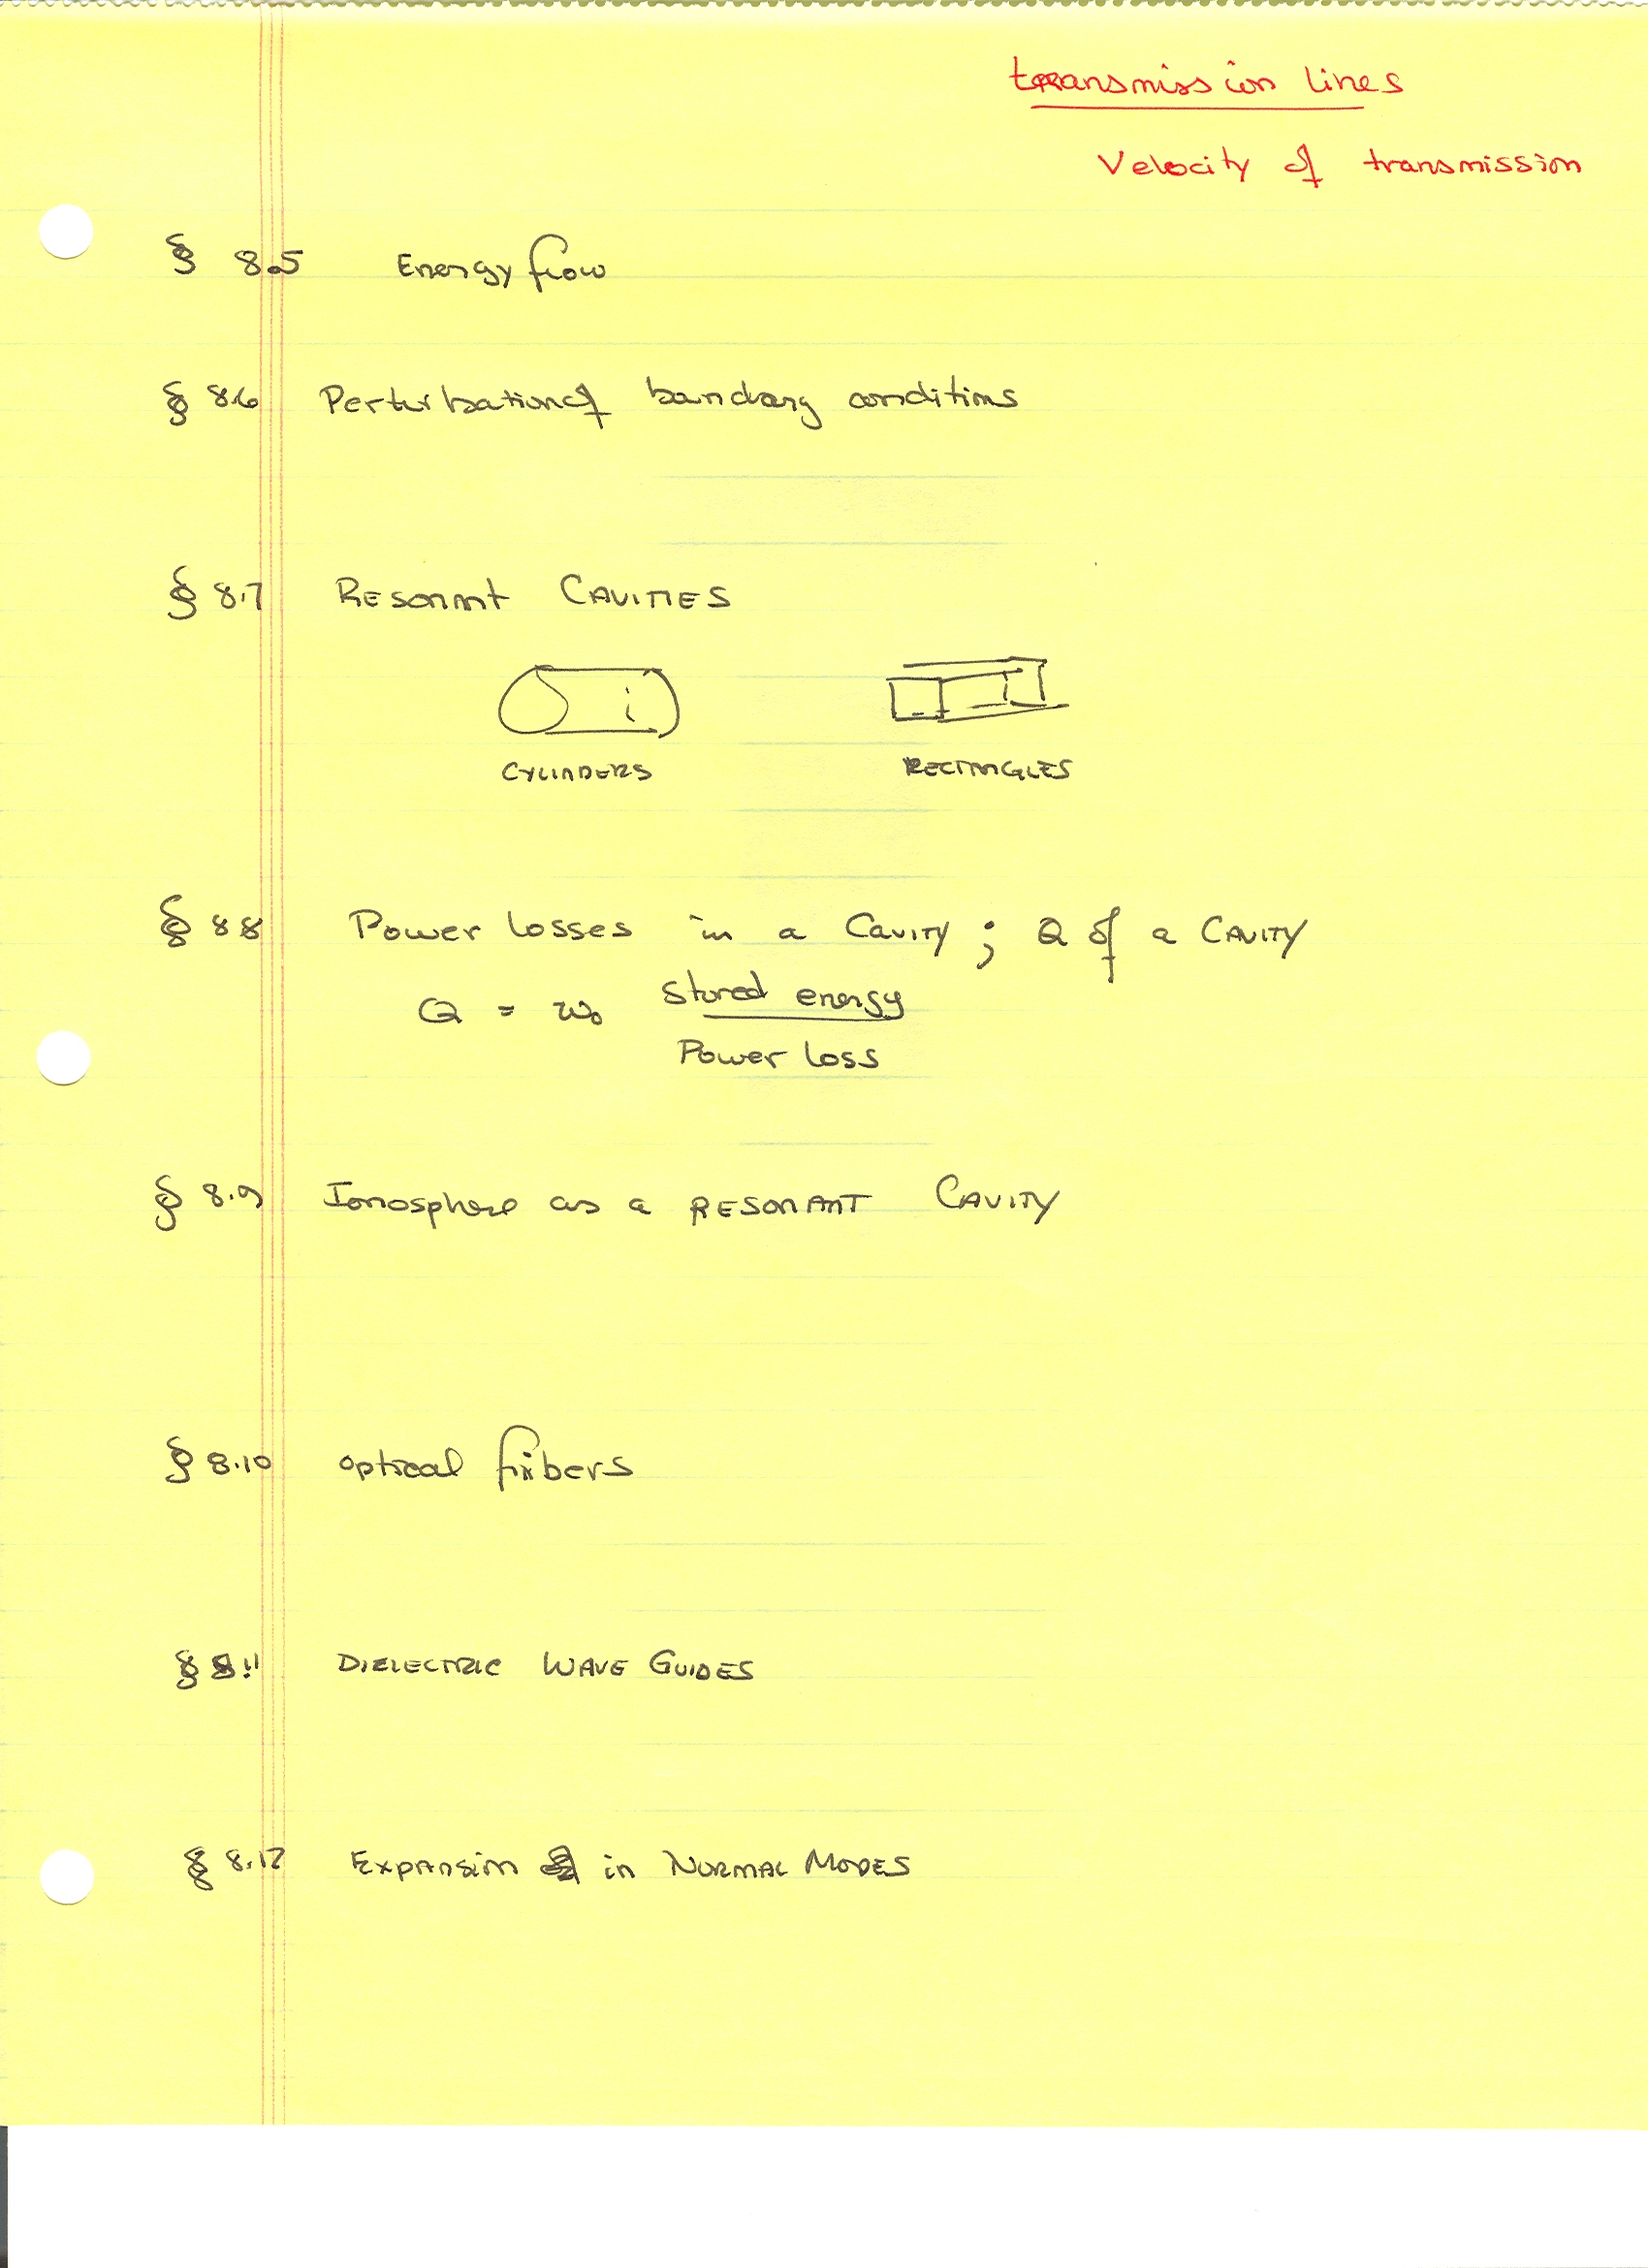 transmission lines
Velocity of transmission
§ 8.5 Energy flow
§ 8.6 Perturbation of boundary conditions
§ 8.7 RESONANT CAVITIES
CYLINDERS RECTANGLES
§ 8.8 Power losses in a CAVITY ; Q of a CAVITY
Q = ω₀ Stored energy
Power loss
§ 8.9 Ionosphere as a RESONANT CAVITY
§ 8.10 optical fibers
§ 8.11 DIELECTRIC WAVE GUIDES
§ 8.12 EXPANSION in NORMAL MODES